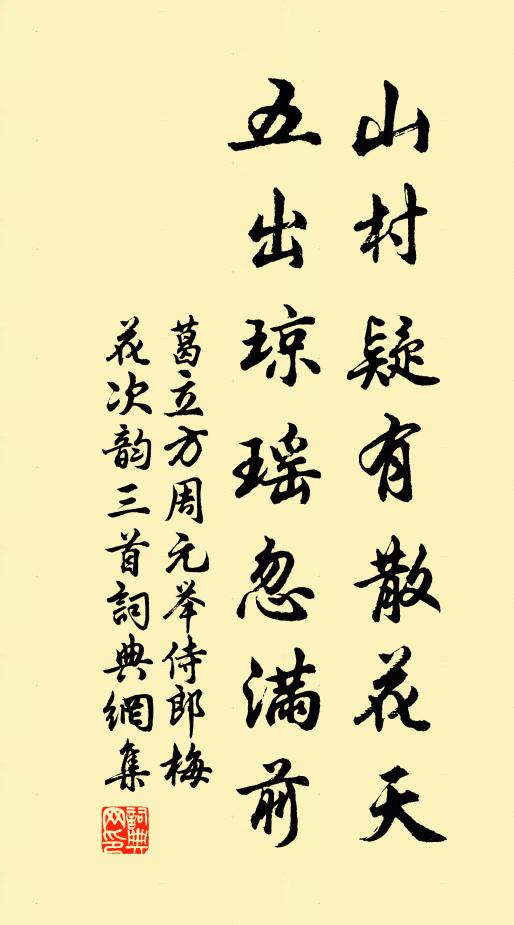 山村疑有散花天
五出琼瑶忽满前
葛立方周元举侍郎梅
花次韵三首詞典網集
詞典
网印